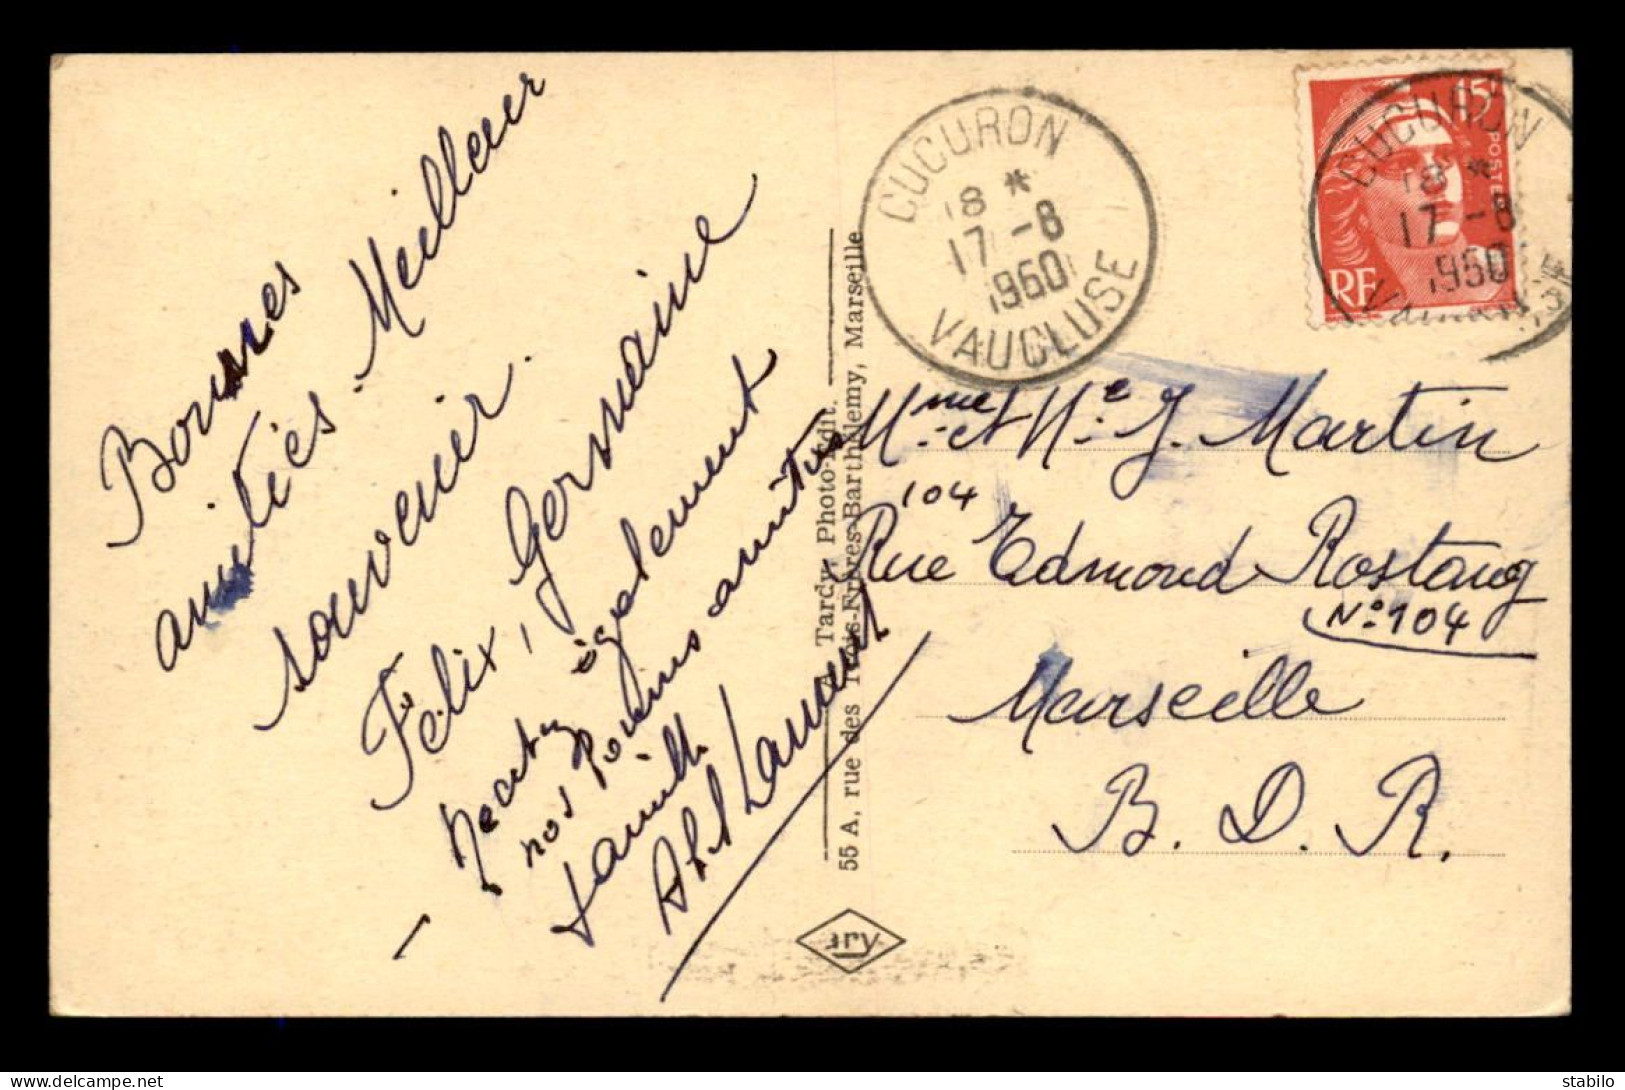 Bonnes
amitiés. Meilleur
souvenir.
Felix, Germaine
également
nos amitiés
famille
Laurent
Tardy, Photo-Edit.
55 A, rue des Trois-Frères-Barthélemy, Marseille
CUCURON
18 *
17 -8
1960
VAUCLUSE
15F
POSTES
RF
CUCURON
18 *
17 -8
1960
Mme et Mr J. Martin
104
Rue Edmond Rostang
No 104
Marseille
B. D. R.
delcampe.net
stabilo